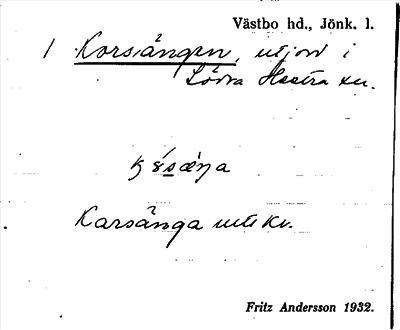 Västbo hd., Jönk. l.
1 Korsängen, utjord i
Södra Hestra sn.
Karsänga utt kv.
Fritz Andersson 1932.